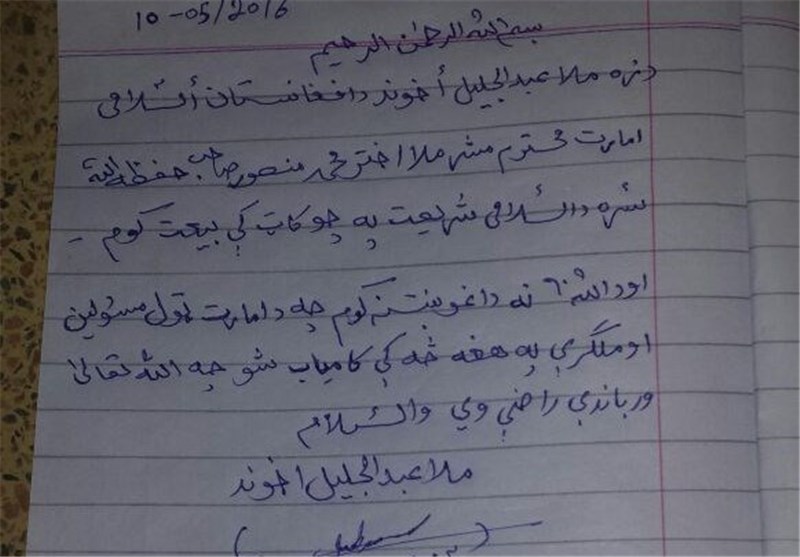 10-05/2016
بسم الله الرحمن الرحيم
دزه ملا عبدالجليل أخوند دافغانستان أسلامی
امارت محترم مشر ملا اختر محمد منصور صاحب حفظه الله
سره داسلامی شريعت په چوکاټ کې بيعت کوم -
او دالله نه داغوښتنه کوم چه د امارت ټول مسئولين
او ملګري په هغه څه کې کامياب شو چه الله تعالیٰ
ورباندې راضي وي والسلام
ملا عبدالجليل اخوند